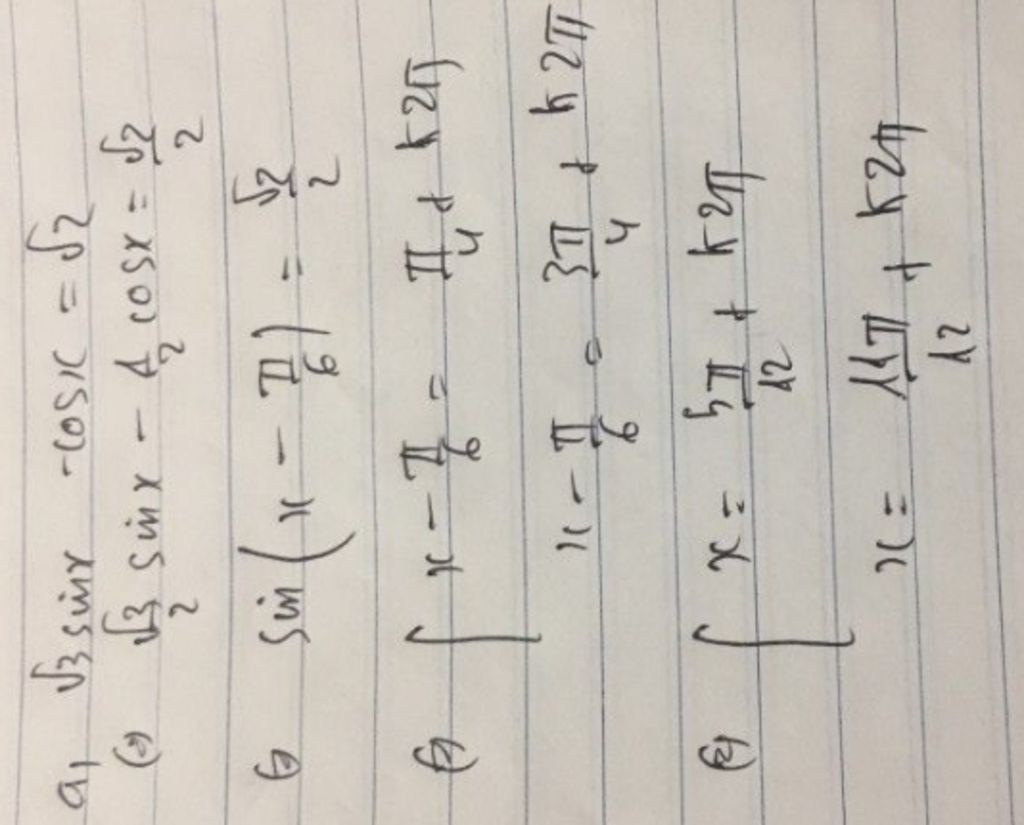 a, √3 sinx - cosx = √2
⇔ √3/2 sinx - 1/2 cosx = √2/2
⇔ sin(x - π/6) = √2/2
⇔ [ x - π/6 = π/4 + k2π
x - π/6 = 3π/4 + k2π
⇔ [ x = 5π/12 + k2π
x = 11π/12 + k2π